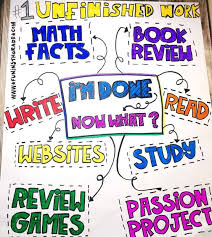 #1 UNFINISHED WORK
MATH
FACTS
BOOK
REVIEW
I'M DONE
NOW WHAT?
WRITE
READ
WEBSITES
STUDY
REVIEW
GAMES
PASSION
PROJECT